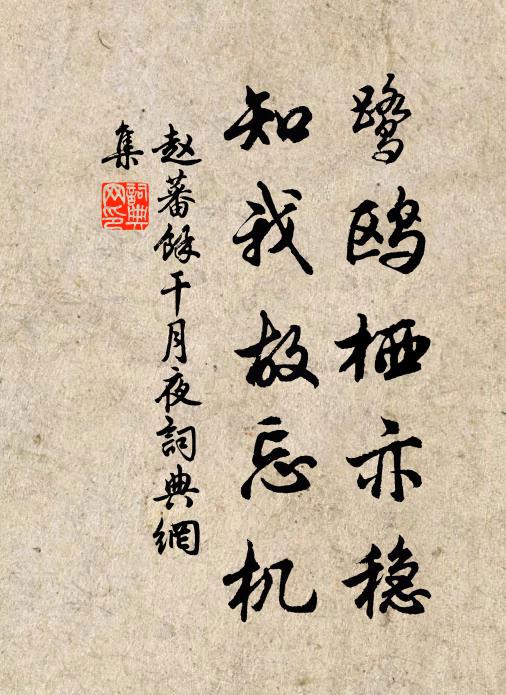 鹭鸥栖亦稳
知我故忘机
赵蕃馀干月夜詞典網
集
詞典
网印